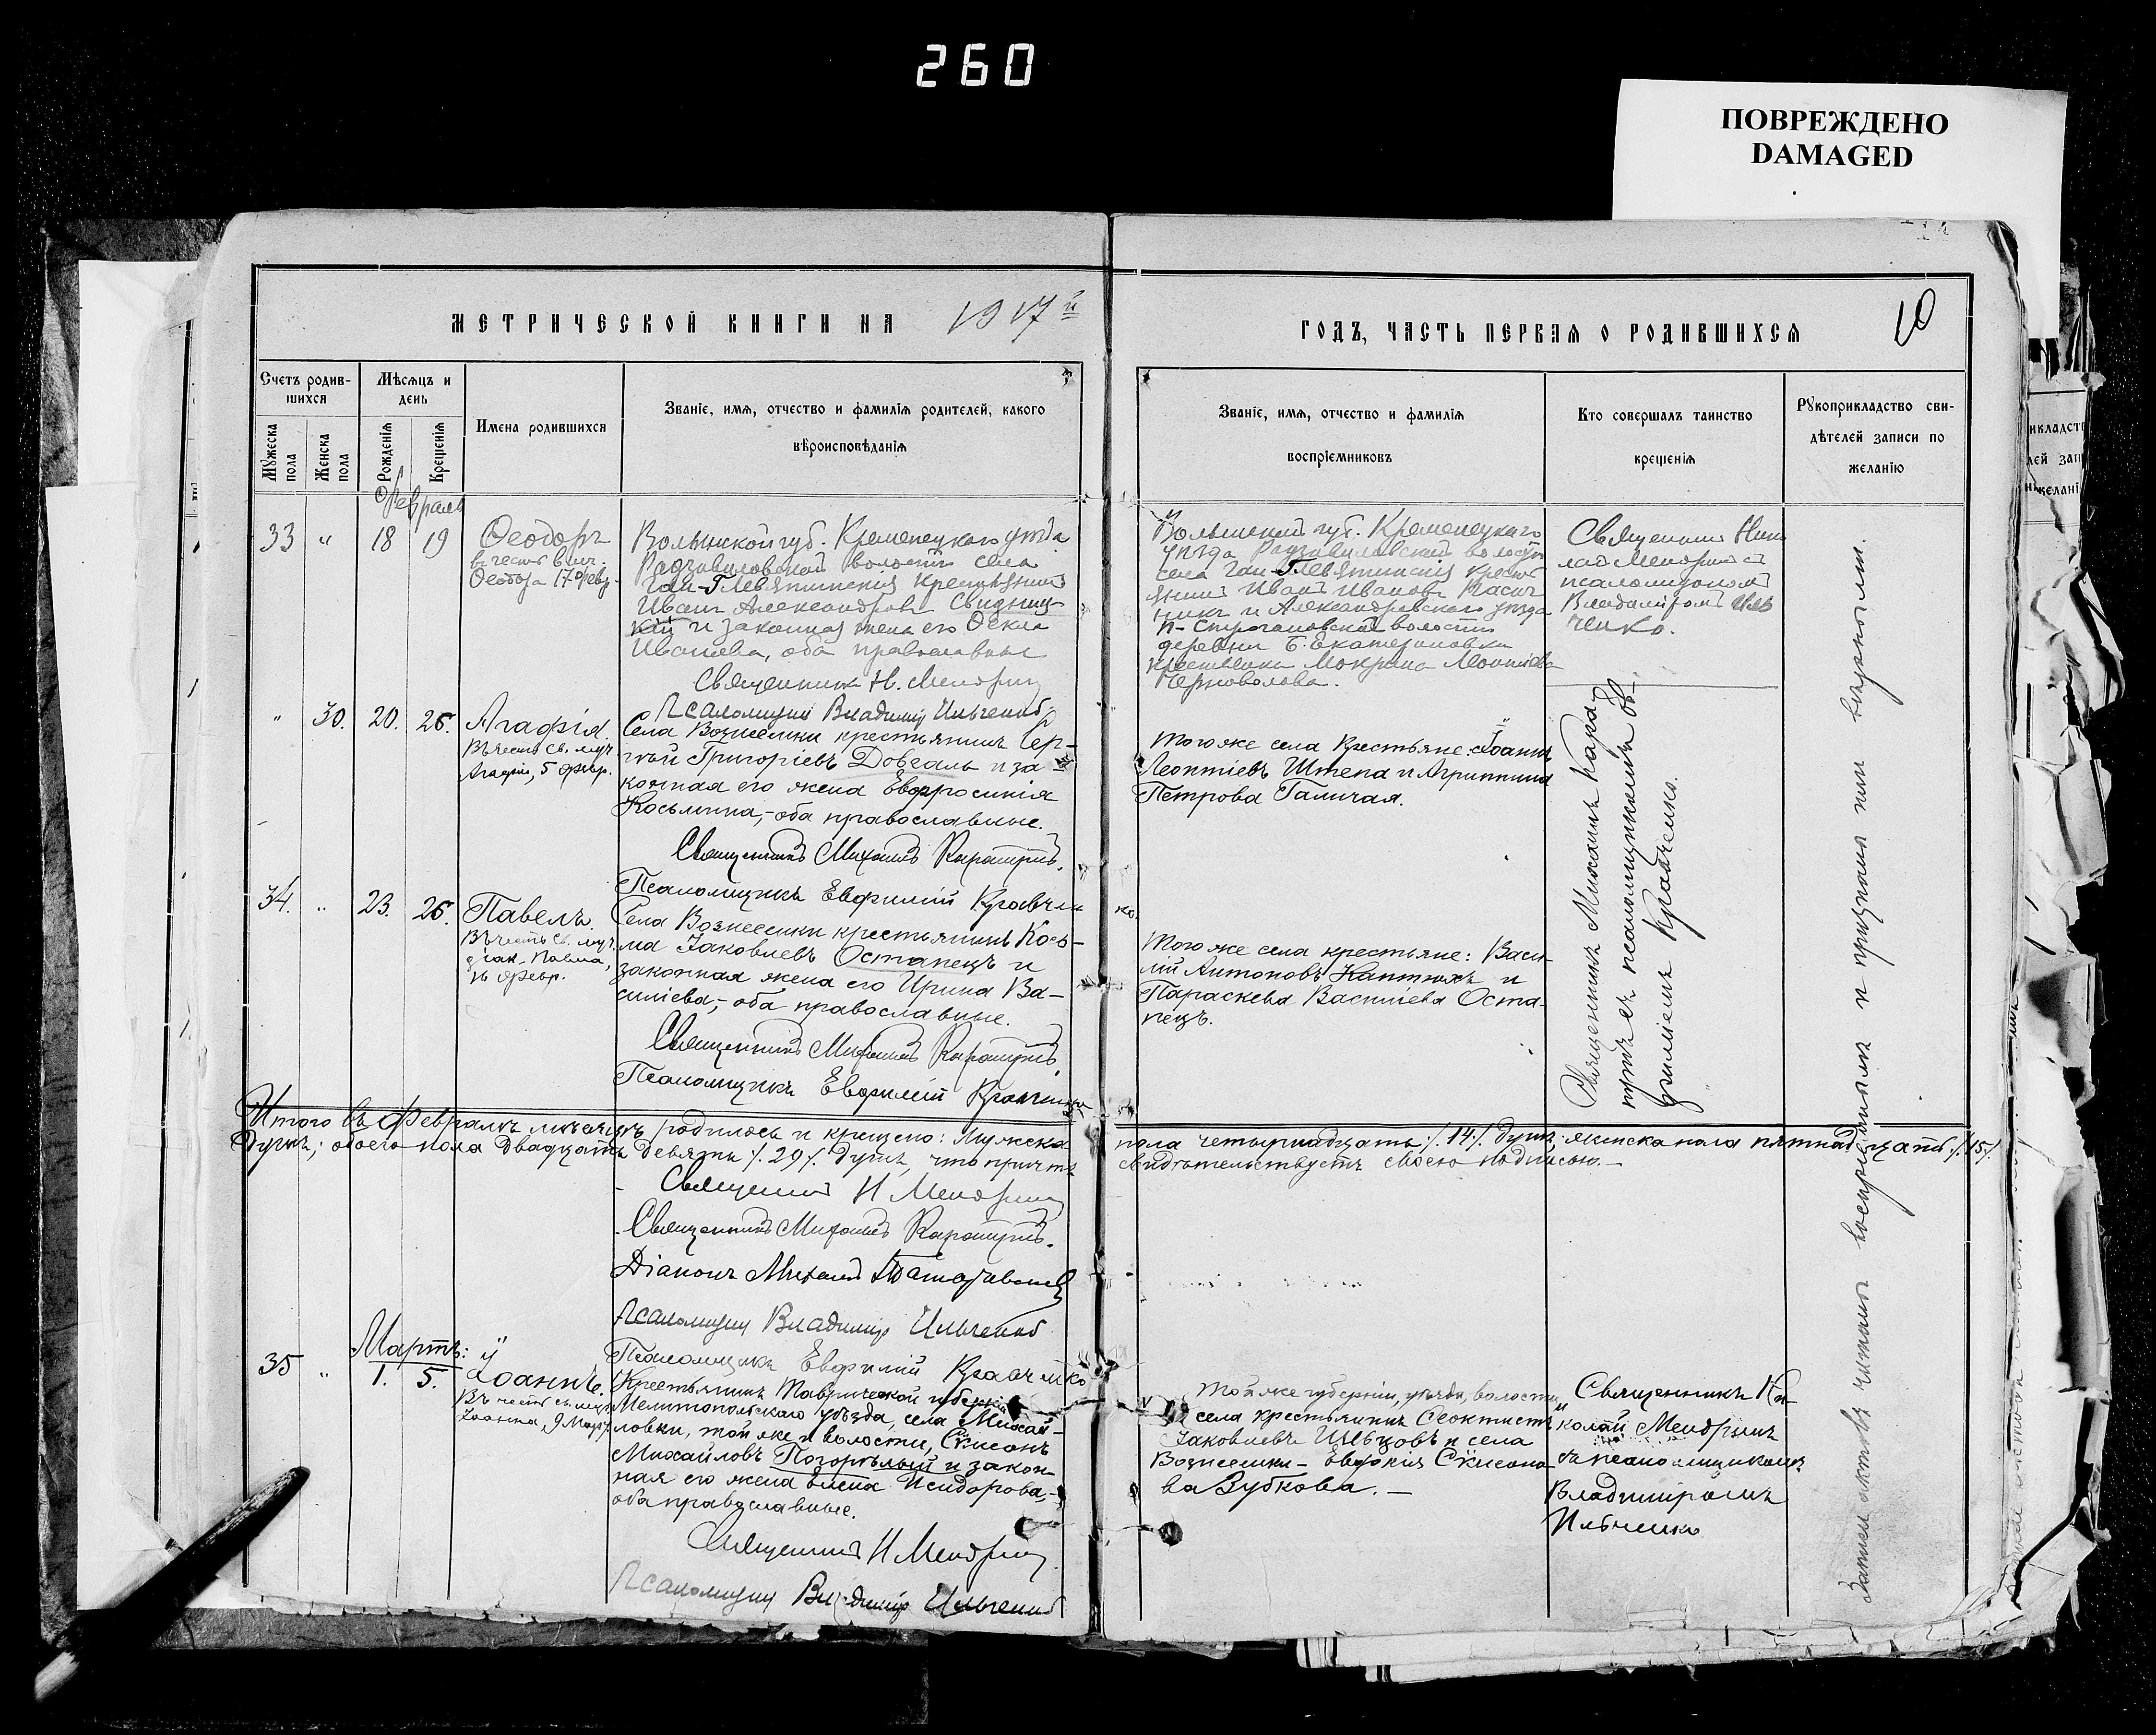 260
ПОВРЕЖДЕНО
DAMAGED
МЕТРИЧЕСКОЙ КНИГИ НА 1917й
ГОДЪ, ЧАСТЬ ПЕРВАЯ О РОДИВШИХСЯ
10
Счетъ родив-
шихся
Мужеска
пола
Женска
пола
Мѣсяцъ и
день
Рожденія
Крещенія
Имена родившихся
Званіе, имя, отчество и фамилія родителей, какого
вѣроисповѣданія
Званіе, имя, отчество и фамилія
воспріемниковъ
Кто совершалъ таинство
крещенія
Рукоприкладство сви-
дѣтелей записи по
желанію
Февраль
33 " 18 19
Ѳеодоръ
въ честь в. муч.
Ѳеодора 17 февр.
Волынской губ. Кременецкаго уѣзда
Радзивиловской волости села
Гаи-Левятинскія крестьянинъ
Иванъ Александровъ Свидниц-
кій и законная жена его Ѳекла
Иванова, оба православные
Священникъ Н. Мендринъ
Псаломщикъ Владиміръ Ильченко
Волынской губ. Кременецкаго
уѣзда Радзивиловской волости
села Гаи-Левятинскія крест
янинъ Иванъ Ивановъ
и Александровскаго уѣзда
волости
деревни Б. Екатериновки
крестьянка Мокрина Леонтіева
Черноволова.
Священникъ Нико
лай Мендринъ съ
псаломщикомъ
Владиміромъ Иль
ченко.
" 30. 20. 26.
Агафія.
Въ честь св. муч.
Агафіи, 5 февр.
Села Вознесенки крестьянинъ Сер-
гѣй Григоріевъ Довгаль и за-
конная его жена Евфросинія
Косьмина,- оба православные.
Священникъ Михаилъ
Псаломщикъ Евфимій Кравченко.
Того же села крестьяне: Іоаннъ
Леонтіевъ Штепа и Агриппина
Петрова Галичая.
34. " 23. 26.
Павелъ.
Въ честь св. муч.
Павла,
16 февр.
Села Вознесенки крестьянинъ Кось-
ма Іаковлевъ Остапецъ и
законная жена его Ирина Ва-
силіева,- оба православные.
Священникъ Михаилъ
Псаломщикъ Евфимій Кравченко
Того же села крестьяне: Васи-
лій Антоновъ и
Параскева Василіева Оста-
пецъ.
Священникъ Михаилъ
съ псаломщикомъ Ев-
фиміемъ Кравченко.
Итого въ Февралѣ мѣсяцѣ родилось и крещено: мужска пола четырнадцать /.14./ душъ; женска пола пятнадцать /.15/.
душъ; обоего пола двадцать девять /.29/. душъ, что причтъ свидѣтельствуетъ своею подписью.-
Священникъ Н Мендринъ
Священникъ Михаилъ
Діаконъ Михаилъ
Псаломщикъ Владиміръ Ильченко
Псаломщикъ Евфимій Кравченко
Мартъ:
35 " 1. 5.
Іоаннъ.
Въ честь св. муч.
Іоанна, 9 Марта.
Крестьянинъ Таврической губерніи
Мелитопольскаго уѣзда, села Михай-
ловки, той же и волости,
Михайловъ Погорѣлый и закон-
ная его жена Елена Исидорова,-
оба православные.
Священникъ Н Мендринъ
Псаломщикъ Владиміръ Ильченко
Той же губерніи, уѣзда, волости
и села крестьянинъ Ѳеоктистъ
Іаковлевъ Швецовъ и села
Вознесенки - Евдокія
ва Зубкова.-
Священникъ Ни-
колай Мендринъ
съ псаломщикомъ
Владиміромъ
Ильченко
Записи актовъ читаны воспріемникамъ и признаны ими вѣрными.